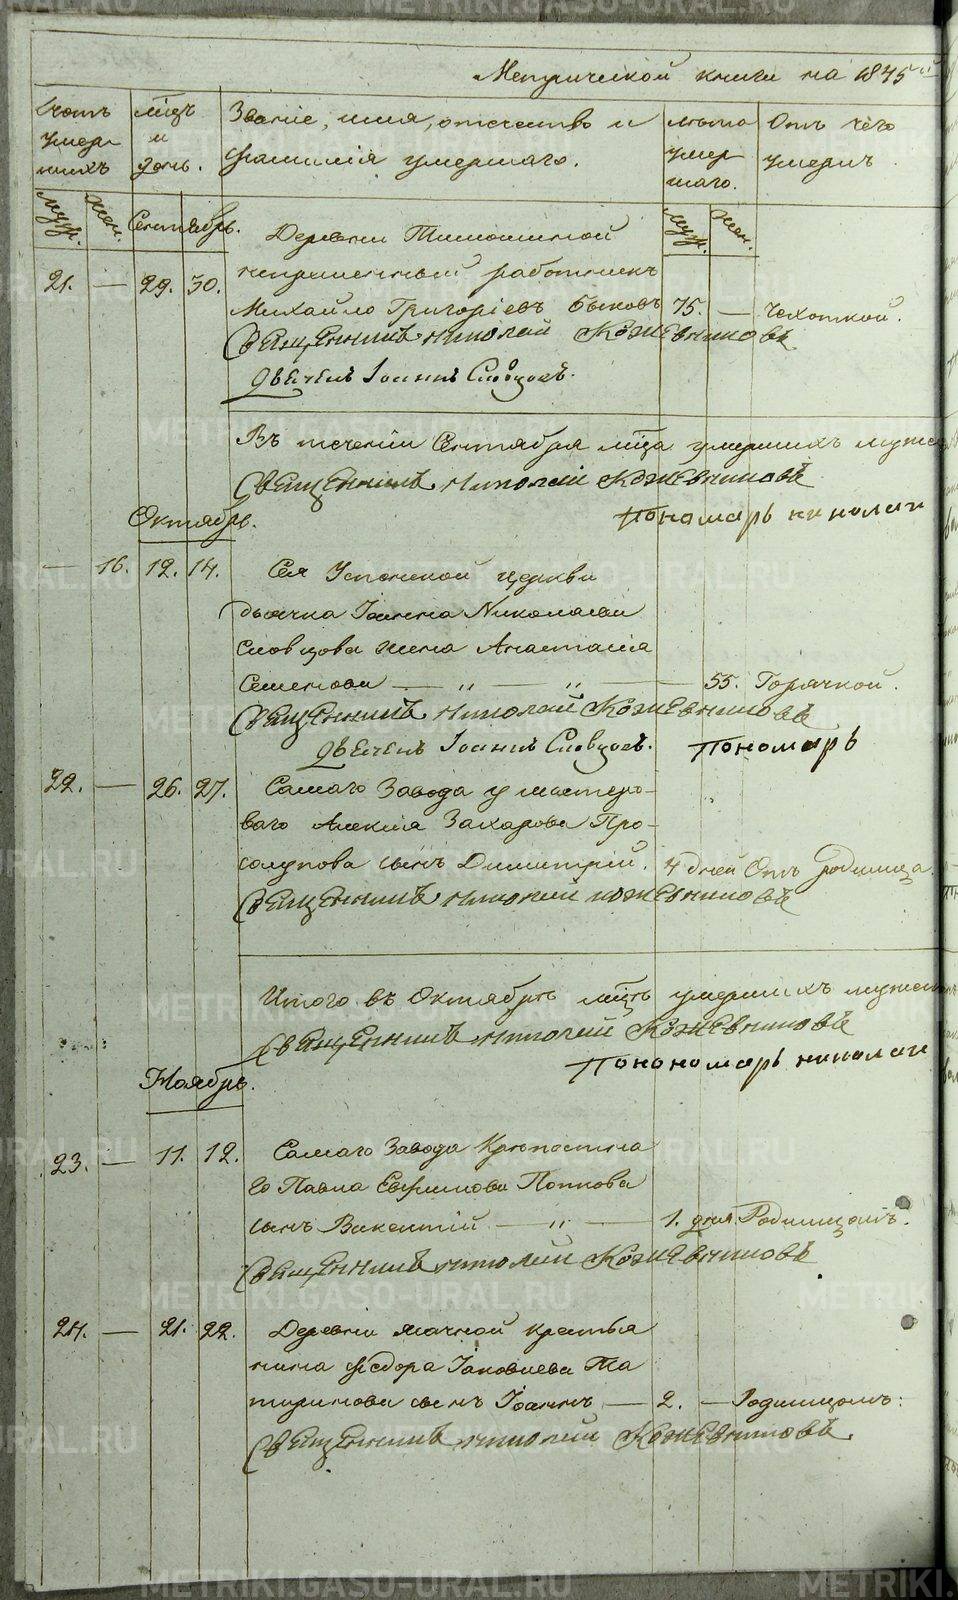 Метрической книги на 1845й
Счетъ умер- шихъ
мцъ и день.
Званіе, имя, отчество и
фамилія умершаго.
лѣта умер шаго.
Отъ чего умеръ
муж. жен. Сентябрь. муж. жен.
Деревни Тимошиной
непременный работникъ
21. — 29. 30. Михайло Григоріевъ Быковъ 75. — Чехоткой.
Священникъ Николай Кожевниковъ
Дьячекъ Іоаннъ Словцовъ.
Въ теченіи Сентября мца умершихъ мужес
Священникъ Николай Кожевниковъ
Пономарь николаи
Октябрь.
— 16. 12. 14. Сея церкви
дьячка Іоанна Николаева
Словцова жена Анастасія
Семенова — „ — „ — 55. Горячкой.
Священникъ Николай Кожевниковъ
Дьячекъ Іоаннъ Словцовъ. Пономарь
22. — 26. 27. Самаго Завода у мастеро-
ваго Алексія Захарова Про-
сын Димитрій. 4 дней Отъ родимца.
Священникъ Николай Кожевниковъ
Итого въ Октябрѣ мцѣ умершихъ мужес
Священникъ Николай Кожевниковъ
Понономарь николаи
Ноябрь.
23. — 11. 12. Самаго Завода Крепостна
го Павла Евфимова Попкова
сынъ Викентій — „ — 1. дня. Родимцомъ.
Священникъ Николай Кожевниковъ
24. — 21. 22. Деревни крестья
нина Ѳедора Іаковлева Та
сынъ Іоаннъ — 2. — Родимцомъ:
Священникъ Николай Кожевниковъ.
METRIKI.GASO-URAL.RU